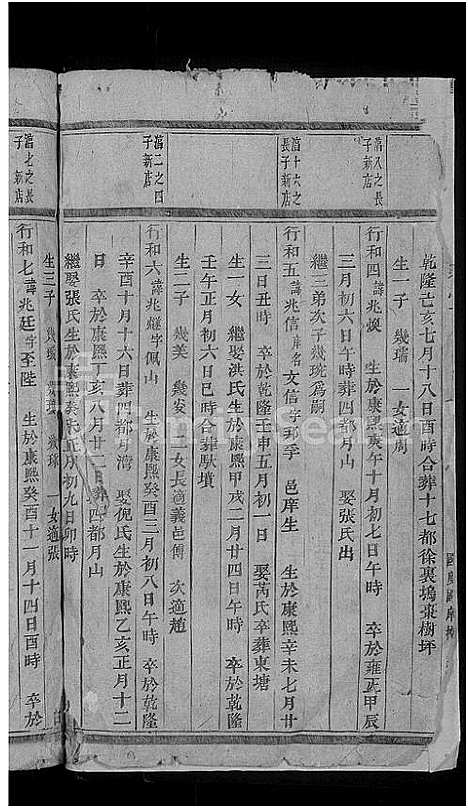 乾隆己亥七月十八日酉時合葬十七都徐裏塢棗樹坪
生一子 幾瑞 一女適周
萿八之長子新店
行和四 諱兆 生於康熙庚午十月初七日午時 卒於雍正甲辰
三月初六日午時葬四都月山 娶張氏出
繼三弟次子幾琬爲嗣
萿十六之長子新店
行和五 諱兆信 庠名文信字邦孚 邑庠生 生於康熙辛未七月廿
三日丑時 卒於乾隆壬申五月初一日 娶芮氏卒葬東塘
生一女 繼娶洪氏生於康熙甲戌二月廿四日 卒於乾隆
壬午正月初六日巳時合葬馱墳
生二子 幾美 幾安 二女長適義邑傅 次適趙
萿二之四子新店
行和六 諱兆繼字佩山 生於康熙癸酉三月初八日午時 卒於乾隆
辛酉十月十六日葬四都月灣 娶倪氏生於康熙乙亥正月十二
日 卒於康熙丁亥八月廿二日葬四都月山
繼娶張氏生於康熙癸未正月初九日卯時
生三子 一女適張
萿七之長子新店
行和七 諱兆廷字至陛 生於康熙癸酉十一月十四日酉時 卒於